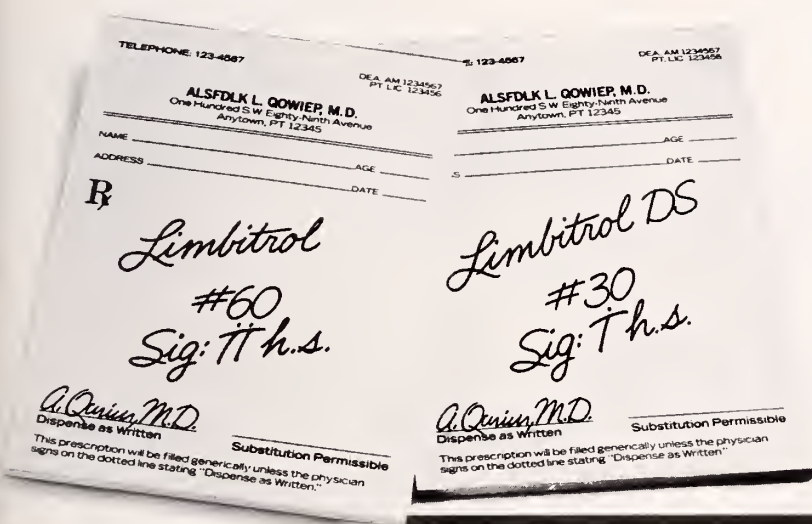 TELEPHONE: 123-4567
DEA. AM 1234567
PT LIC 123456
ALSFDLK L. QOWIEP, M.D.
One Hundred S.W Eighty-Ninth Avenue
Anytown, PT 12345
NAME AGE
ADDRESS DATE
Rx
Limbitrol
#60
Sig: ii h.s.
Dispense as Written
Substitution Permissible
This prescription will be filled generically unless the physician
signs on the dotted line stating "Dispense as Written."
E: 123-4567
DEA. AM 1234567
PT. LIC 123456
ALSFDLK L. QOWIEP, M.D.
One Hundred S.W Eighty-Ninth Avenue
Anytown, PT 12345
AGE
S DATE
Limbitrol DS
#30
Sig: i h.s.
Dispense as Written
Substitution Permissible
This prescription will be filled generically unless the physician
signs on the dotted line stating "Dispense as Written."